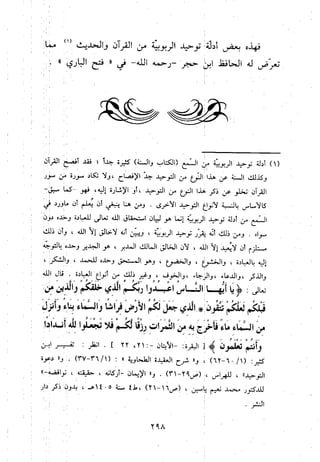 فهذه بعض أدلة توحيد الربوبية من القرآن والحديث (١) مما
تعرّض له الحافظ ابن حجر -رحمه الله- في « فتح الباري » .
(١) أدلة توحيد الربوبية من السمع (الكتاب والسنة) كثيرة جدًا ، فقد أفصح القرآن
وكذلك السنة عن هذا النوع من التوحيد جد الإفصاح ، ولا تكاد سورة من سور
القرآن تخلو من ذكر هذا النوع من التوحيد ، أو الإشارة إليه ، فهو -كما سبق-
كالأساس بالنسبة لأنواع التوحيد الأخرى . ومن هنا ينبغي أن يُعلم أن ماورد في
السمع من أدلة توحيد الربوبية إنما هو لبيان استحقاق الله تعالى للعبادة وحده دون
سواه . ومن ذلك أنه يقرر توحيد الربوبية ، ويبين أن لا خالق إلا الله ، وأن ذلك
مستلزم أن لا يُعبد إلا الله ، لأن الخالق المالك المدبر ، هو الجدير وحده بالتوجه
إليه بالعبادة ، والخشوع ، والخضوع ، وهو المستحق وحده للحمد ، والشكر ،
والذكر ، والدعاء ، والرجاء ، والخوف ، وغير ذلك من أنواع العبادة . قال الله
تعالى : ﴿ يا أيها الناس اعبدوا ربكم الذي خلقكم والذين من
قبلكم لعلكم تتقون * الذي جعل لكم الأرض فراشًا والسماء بناء وأنزل
من السماء ماء فأخرج به من الثمرات رزقًا لكم فلا تجعلوا لله أندادًا
وأنتم تعلمون ﴾ [ البقرة: -الآيتان- : ٢١، ٢٢ ] . انظر : تفسير ابن
كثير: (١/٦٠-٦٢) ، و « شرح العقيدة الطحاوية » : (١/٣٦-٣٧) . و« دعوة
التوحيد» ، للهراس ، (ص٢٩-٣١) . و« الإيمان -أركانه ، حقيقته ، نواقضه-»
للدكتور محمد نعيم ياسين ، (ص١٦-٢١) ، ط٤ سنة ١٤٠٥هـ ، بدون ذكر دار
النشر .
٢٩٨